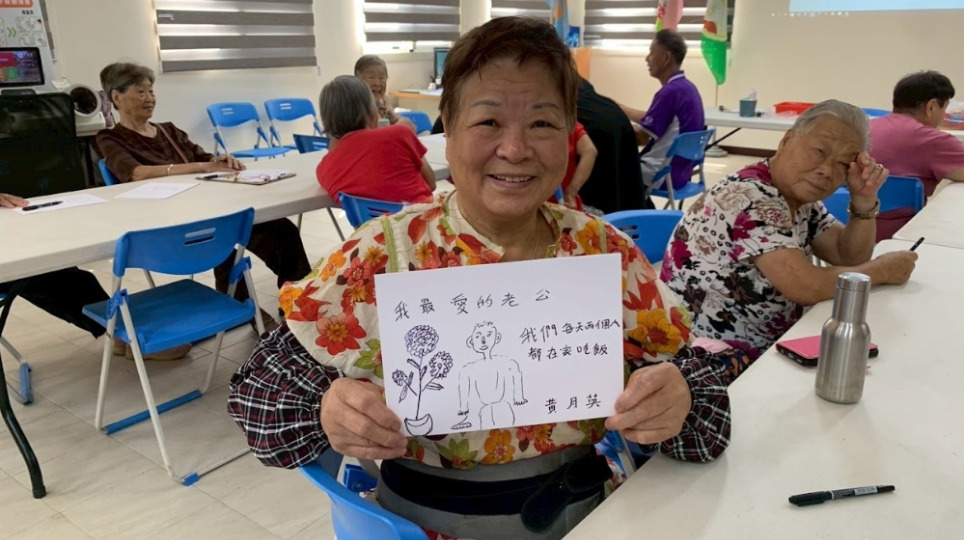 我最愛的老公
我們每天兩個人
都在家吃飯
黃月英